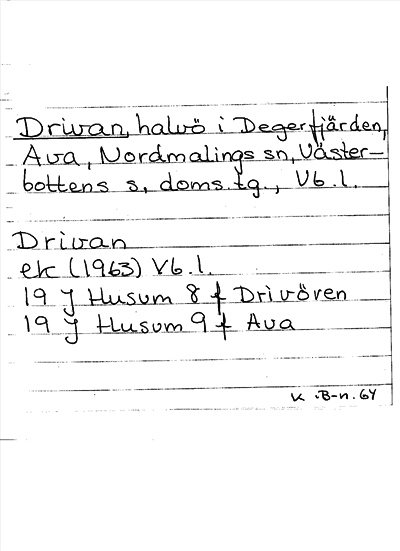 Drivan, halvö i Degerfjärden,
Ava, Nordmalings sn, Väster-
bottens s. doms.tg., Vb.l.
Drivan
ek (1963) Vb.l.
19 J Husum 8 f Drivören
19 J Husum 9 f Ava
K.B-n. 64